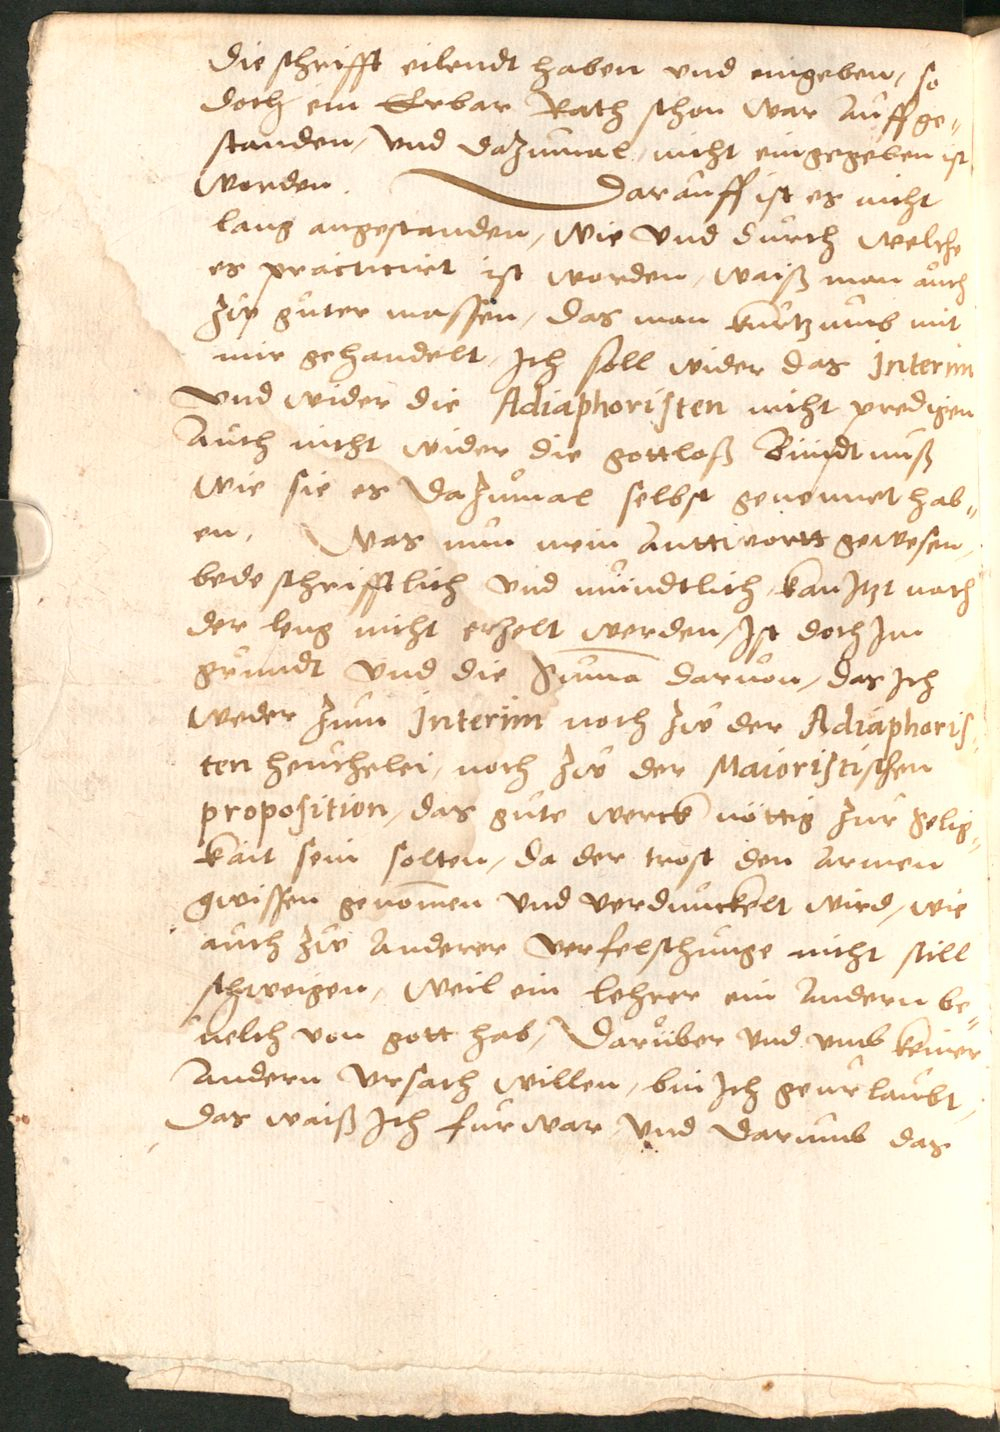 die schrifft eilendt haben vnd eingeben, so
doch ein Erbar Rath schon war auffge„
standen, vnd dazumal nicht eingegeben ist
worden. Darauff ist es nicht
lang angestanden, wie vnd durch welche
es practicirt ist worden, waiß man auch
zw guter massen, das man kurtzumb mit
mir gehandelt, Ich soll wider das Interim
vnd wider die Adiaphoristen nicht predigen
Auch nicht wider die gottloß Bündtnuß
wie sie es dazumal selbst genennet hab„
en. Was nun mein Anttwortt gewesen,
bede schrifftlich vnd mündtlich, kan Itzt nach
der leng nicht erzelt werden, Ist doch Im
grundt vnd die Suma daruon, das Ich
weder zum Interim noch zw der Adiaphoris„
ten heuchelei, noch zw der Maioristischen
proposition, das gute werck nöttig zur selig„
kait sein solten, da der trost den armen
gwissen genomen vnd verdunckelt wird, wie
auch zw anderer verfelschunge nicht still
schweigen, weil ein lehrer ein andern be„
uelch von gott hab, Darüber vnd vmb keiner
andern vrsach willen, bin Ich geurlaubt,
das waiß Ich furwar, vnd darumb das